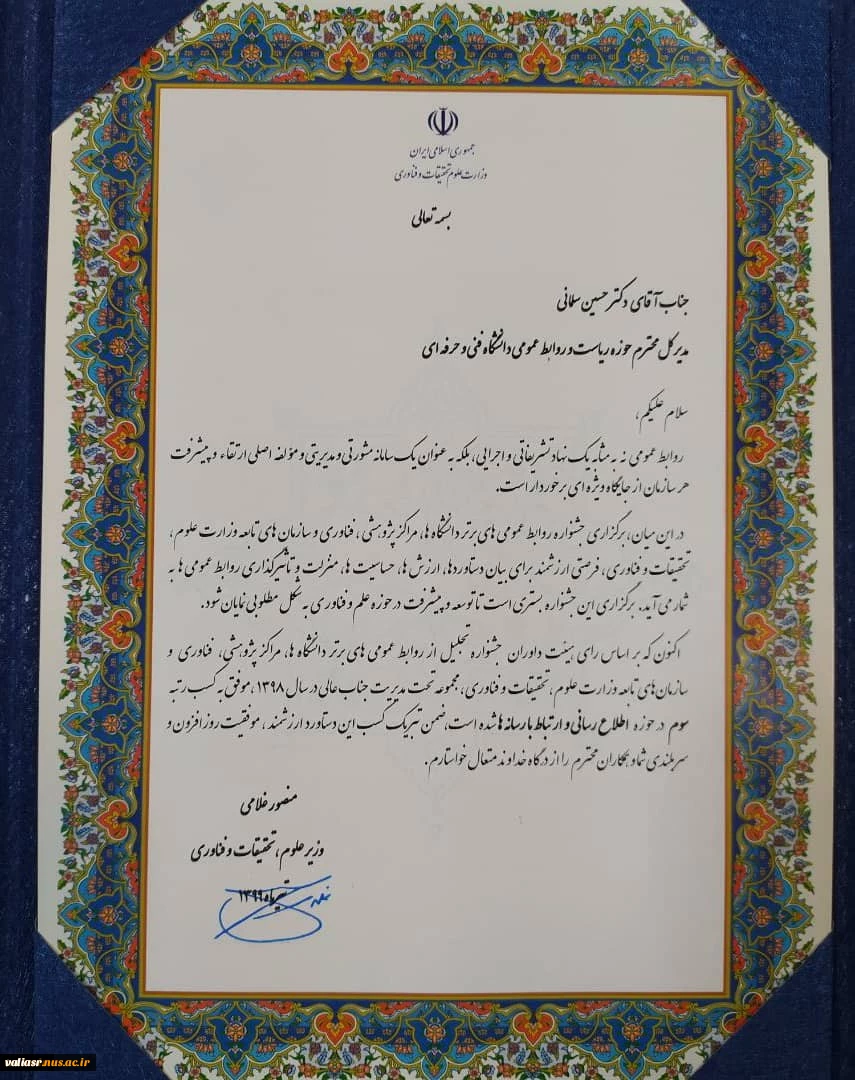 جمهوری اسلامی ایران
وزارت علوم تحقیقات و فناوری
بسمه تعالی
جناب آقای دکتر حسین سلمانی
مدیر کل محترم حوزه ریاست و روابط عمومی دانشگاه فنی و حرفه ای
سلام علیکم،
روابط عمومی نه به مثابه یک نهاد تشریفاتی و اجرایی، بلکه به عنوان یک سامانه مشورتی و مدیریتی و مؤلفه اصلی ارتقاء و پیشرفت
هر سازمان از جایگاه ویژه ای برخوردار است.
در این میان، برگزاری جشنواره روابط عمومی های برتر دانشگاه ها، مراکز پژوهشی، فناوری و سازمان های تابعه وزارت علوم،
تحقیقات و فناوری، فرصتی ارزشمند برای بیان دستاوردها، ارزش ها، حساسیت ها، منزلت و تأثیرگذاری روابط عمومی ها به
شمار می آید. برگزاری این جشنواره بستری است تا توسعه و پیشرفت در حوزه علم و فناوری به شکل مطلوبی نمایان شود.
اکنون که بر اساس رای هیئت داوران جشنواره تجلیل از روابط عمومی های برتر دانشگاه ها، مراکز پژوهشی، فناوری و
سازمان های تابعه وزارت علوم، تحقیقات و فناوری، مجموعه تحت مدیریت جناب عالی در سال ۱۳۹۸، موفق به کسب رتبه
سوم در حوزه اطلاع رسانی و ارتباط با رسانه ها شده است، ضمن تبریک کسب این دستاورد ارزشمند، موفقیت روزافزون و
سربلندی شما و همکاران محترم را از درگاه خداوند متعال خواستارم.
منصور غلامی
وزیر علوم، تحقیقات و فناوری
تیرماه ۱۳۹۹
valiasr.nus.ac.ir